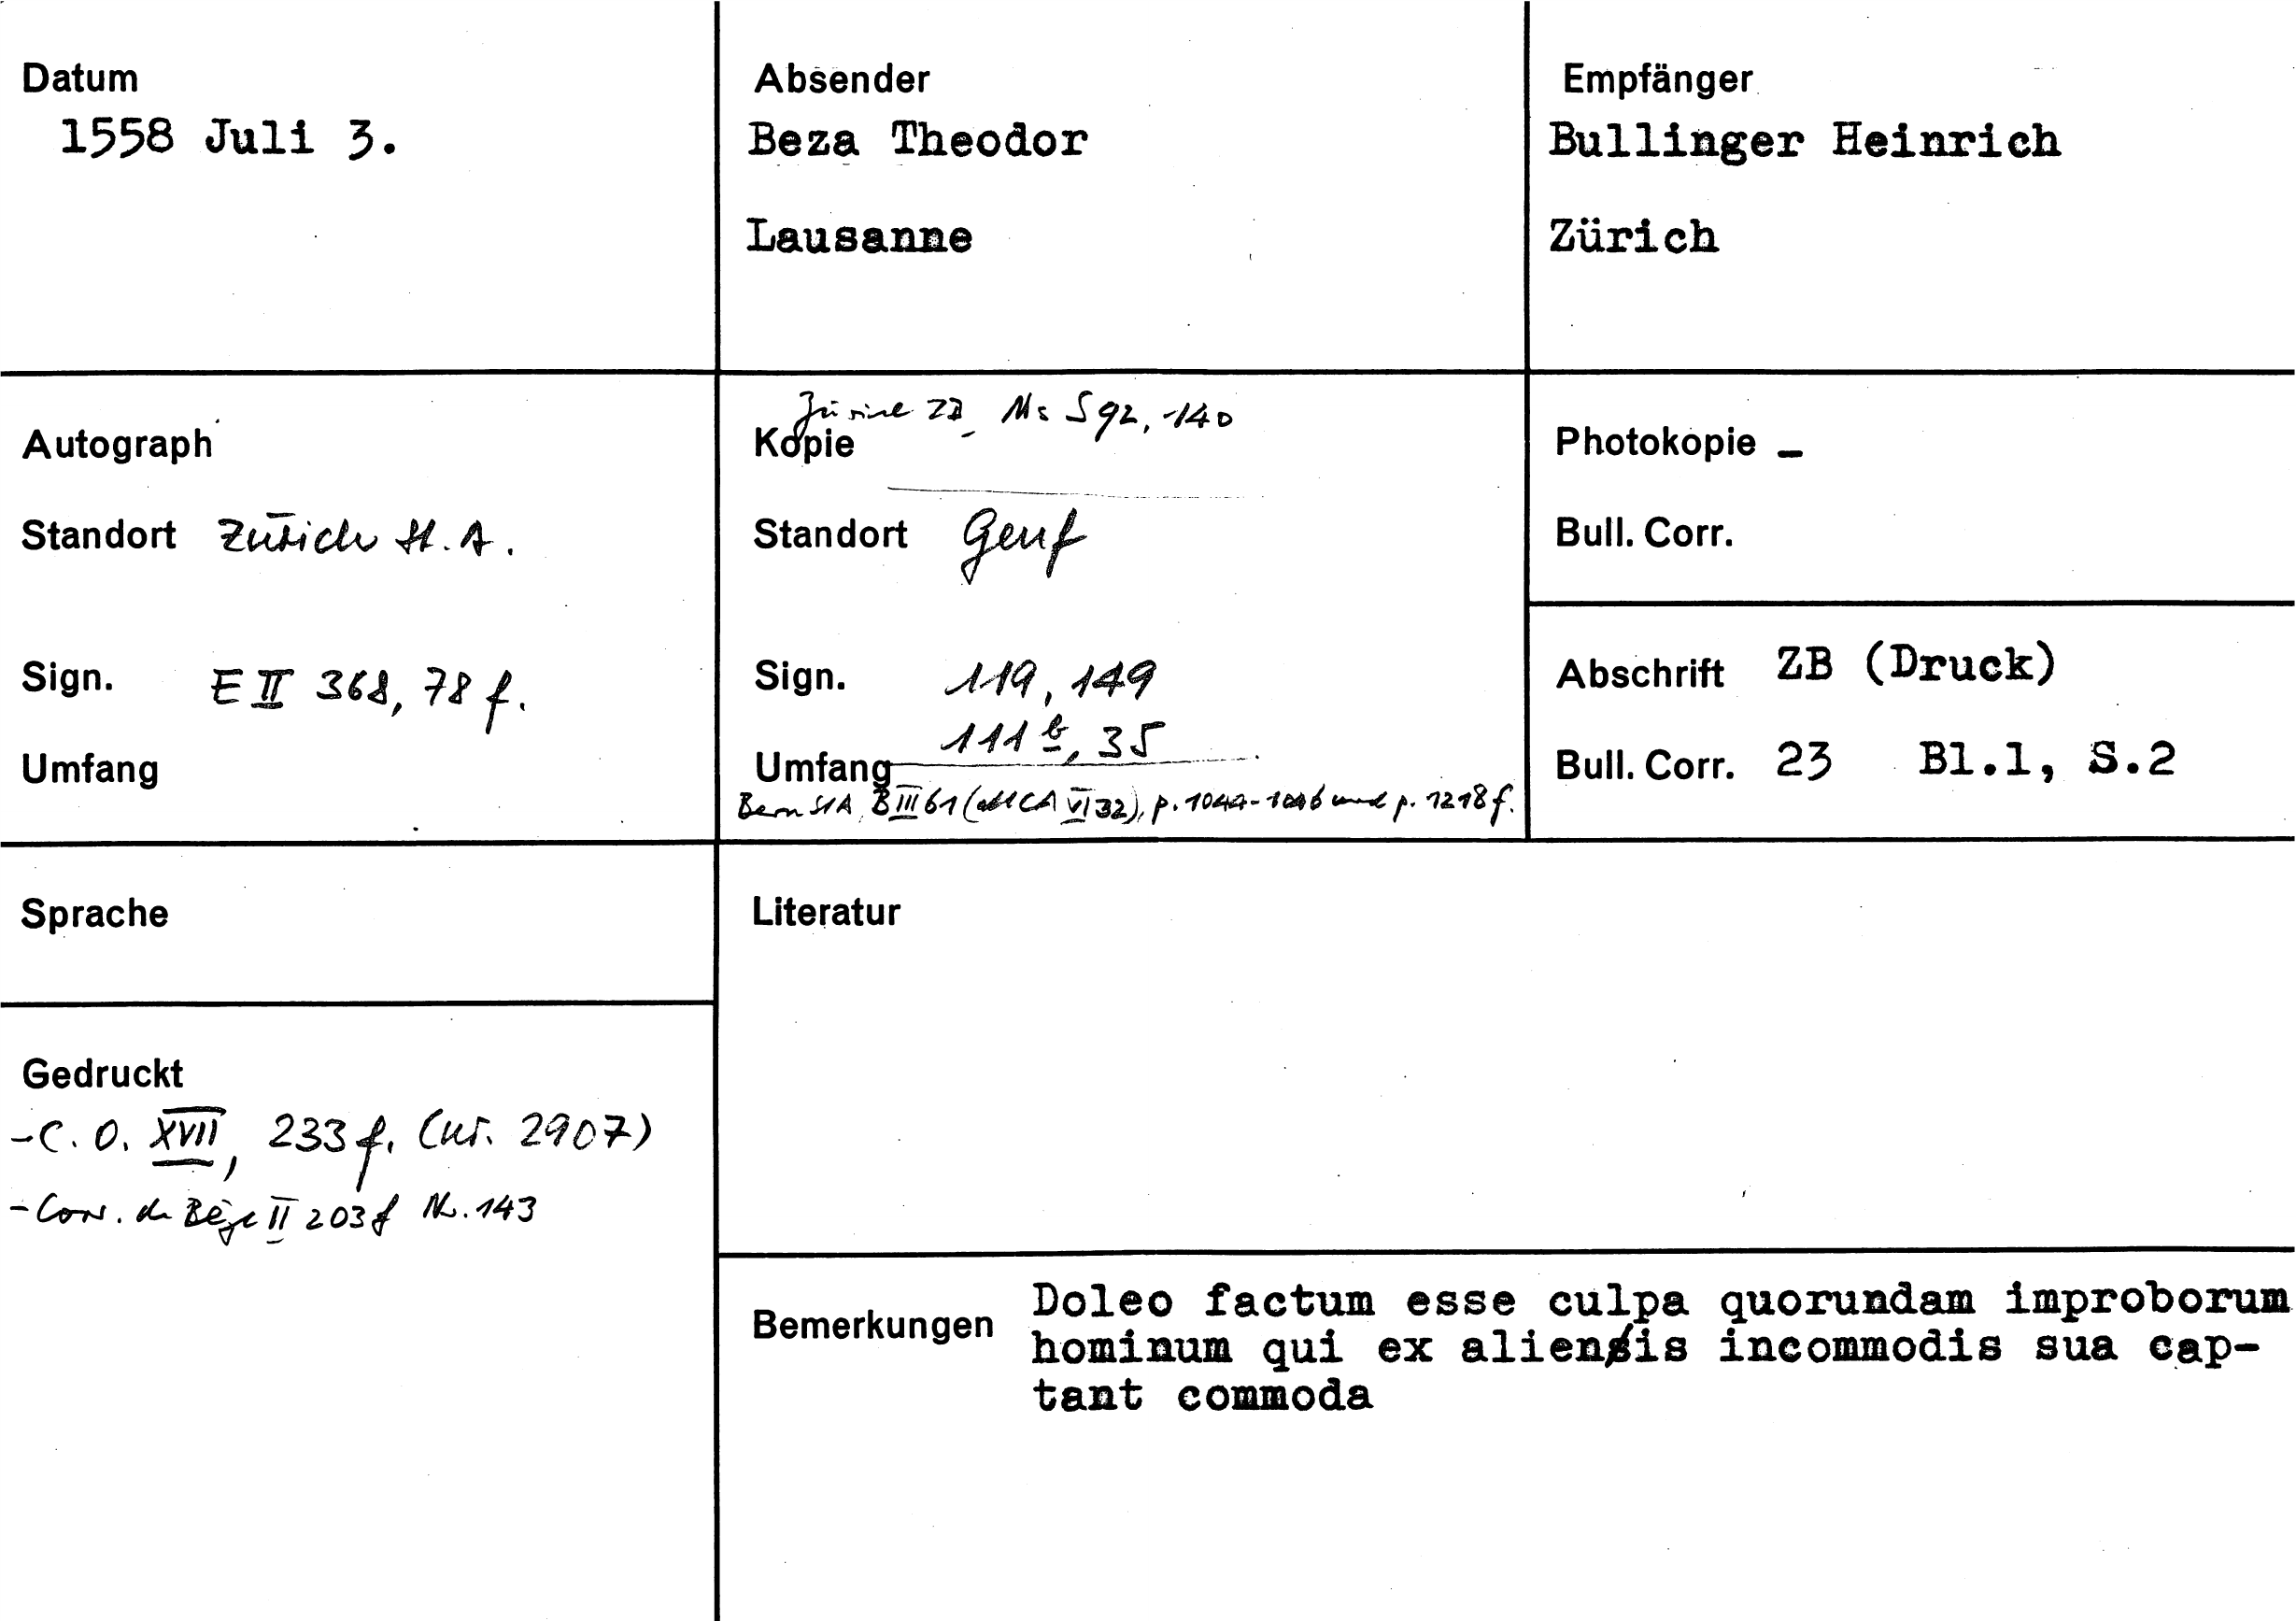 Datum
1558 Juli 3.
Absender
Beza Theodor
Lausanne
Empfänger
Bullinger Heinrich
Zürich
Autograph
Standort Zürich St. A.
Sign. E II 368, 78 f.
Umfang
Zürich ZB Ms S 92, 140
Kopie
Standort Genf
Sign. 119, 149
111 b, 35
Umfang
Bern StA, B III 61 (alt CA VI 32), p. 1044-1046 und p. 1218 f.
Photokopie -
Bull. Corr.
Abschrift ZB (Druck)
Bull. Corr. 23 Bl.1, S.2
Sprache
Literatur
Gedruckt
- C. O. XVII, 233 f. (nr. 2907)
- Corr. de Bèze II 203 f Nr. 143
Bemerkungen Doleo factum esse culpa quorundam improborum
hominum qui ex alienis incommodis sua cap-
tant commoda